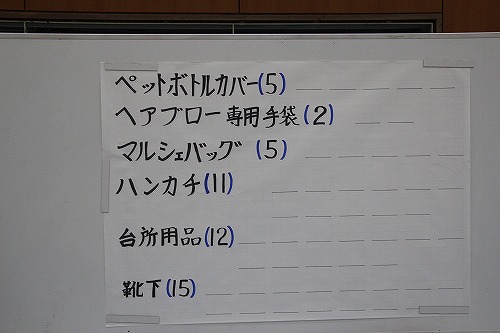 ペットボトルカバー(5)
ヘアブロー専用手袋(2)
マルシェバッグ(5)
ハンカチ(11)
台所用品(12)
靴下(15)